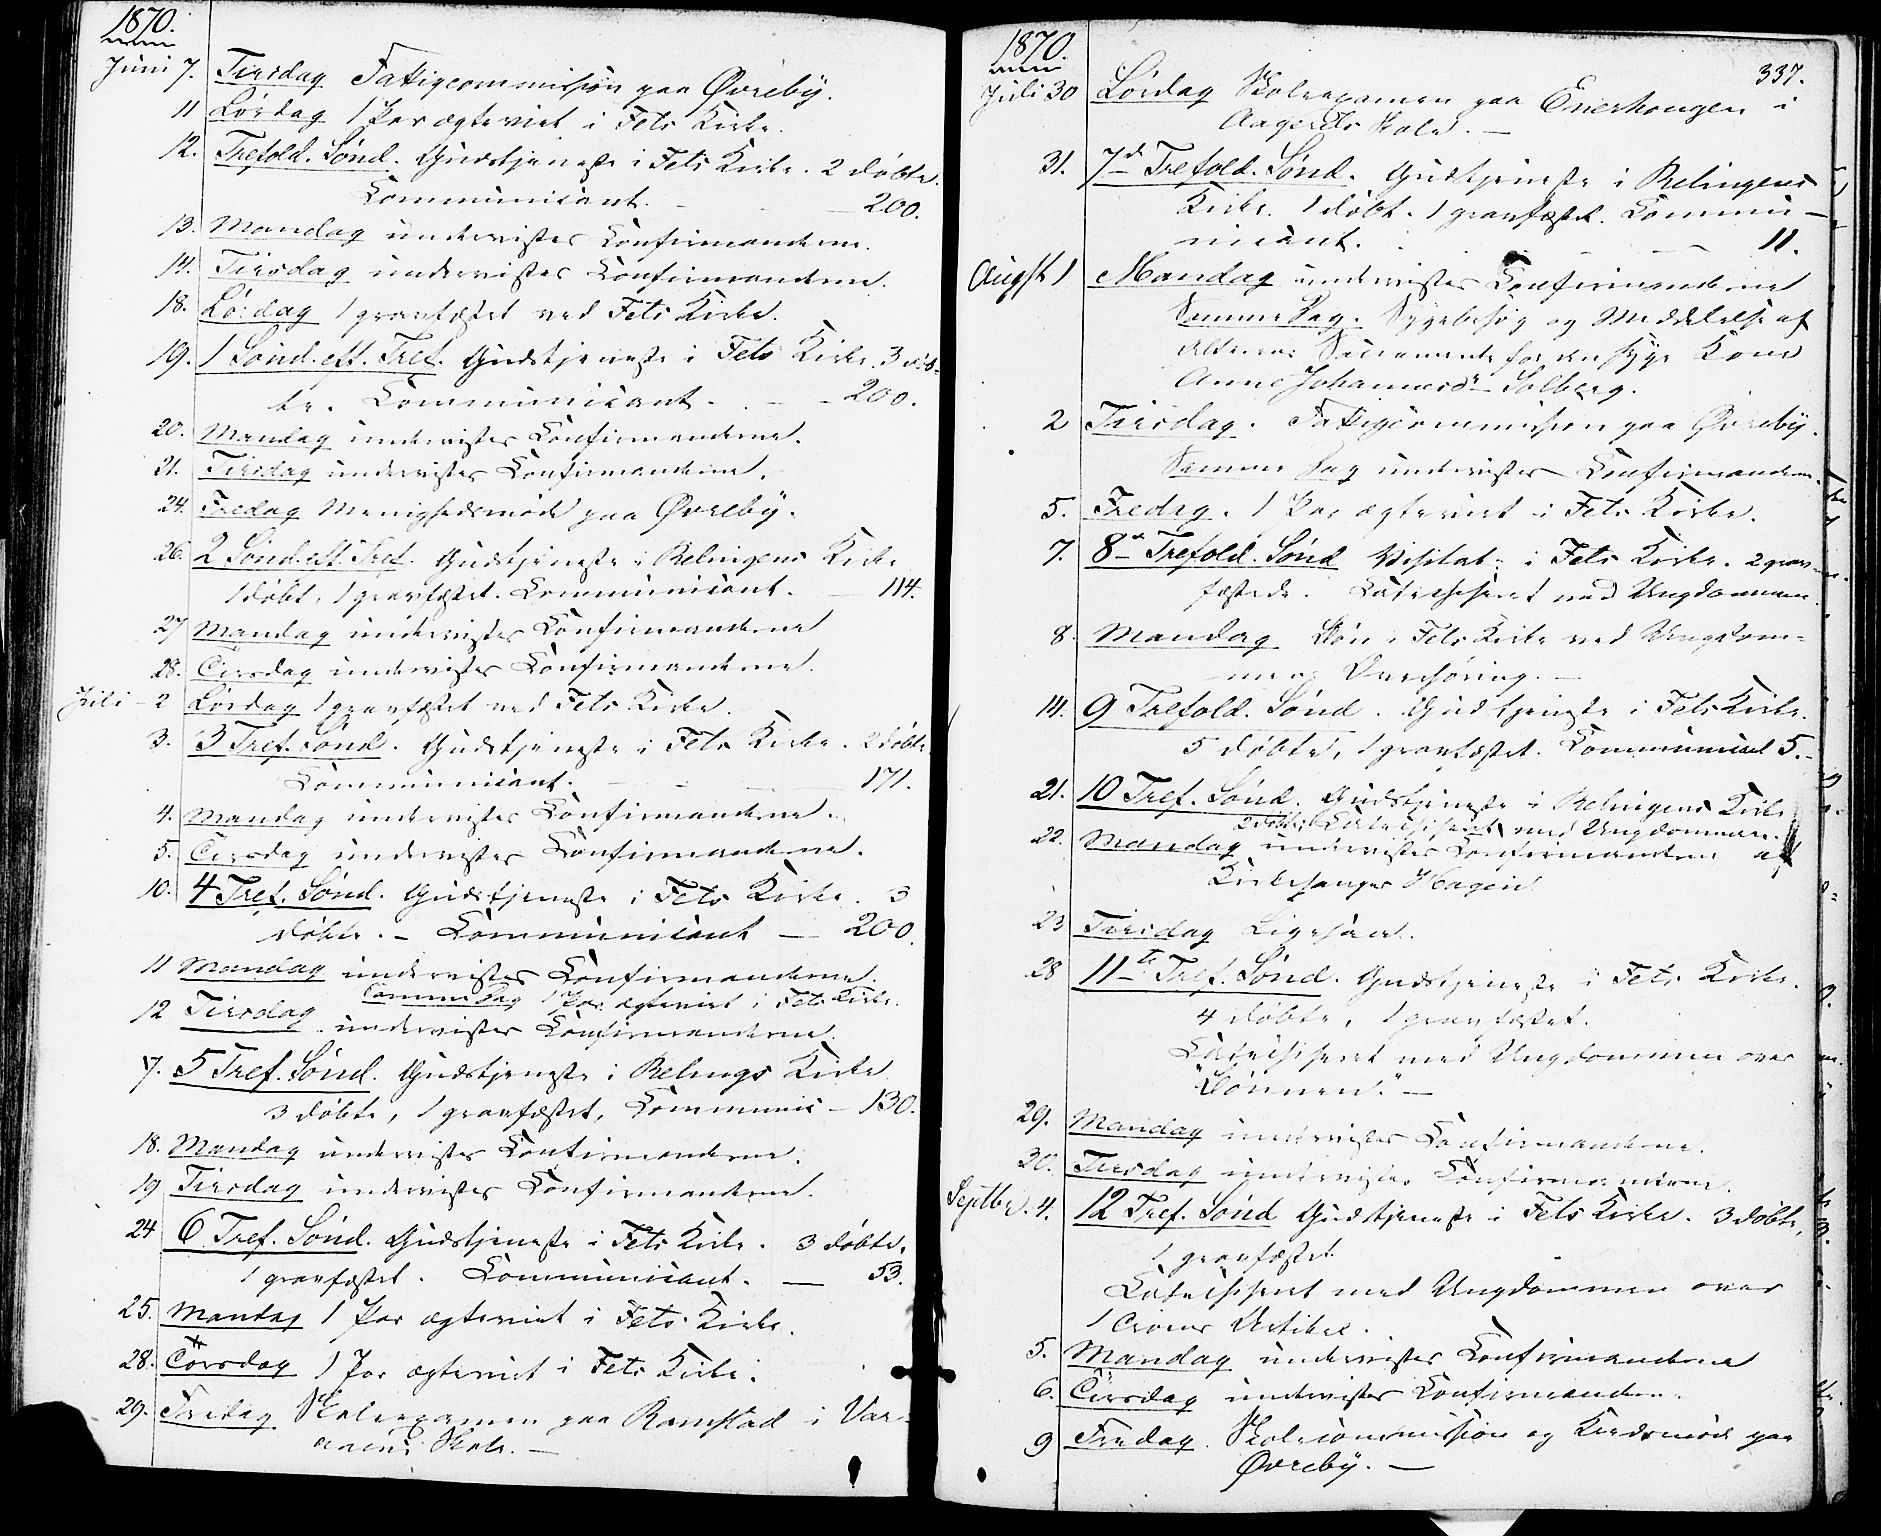 1870.
Juni 7. Tirsdag Fattigcommission paa Øvreby.
11 Lørdag 1 Par ægteviet i Fets Kirke.
12. Trefold. Sønd. Gudstjeneste i Fets Kirke. 2 døbte.
Communicant. — 200.
13. Mandag undervistes Confirmanderne.
14. Tirsdag undervistes Confirmanderne.
18. Lørdag 1 gravfæstet ved Fets Kirke.
19. 1 Sønd. eft. Tref. Gudstjeneste i Fets Kirke. 3 døb-
te. Communicant. — 200.
20. Mandag undervistes Confirmanderne.
21. Tirsdag undervistes Confirmanderne.
24. Fredag Menighedsmøde paa Øvreby.
26. 2 Sønd. eft. Tref. Gudstjeneste i Relingens Kirke
1 døbt, 1 gravfæstet. Communicant. — 114.
27 Mandag undervistes Confirmanderne
28. Tirsdag undervistes Confirmanderne.
Juli 2 Lørdag 1 gravfæstet ved Fets Kirke.
3. 3 Tref. Sønd. Gudstjeneste i Fets Kirke. 2 døbte
Communicant. — 171.
4. Mandag undervistes Confirmanderne.
5. Tirsdag undervistes Confirmanderne.
10. 4 Tref. Sønd. Gudstjeneste i Fets Kirke. 3
døbte. — Communicant — 200.
11 Mandag undervistes Confirmanderne.
Samme Dag 1 Par ægteviet i Fets Kirke.
12 Tirsdag undervistes Confirmanderne.
17. 5 Tref. Sønd. Gudstjeneste i Relings Kirke
3 døbte, 1 gravfæstet, Communic — 130.
18. Mandag undervistes Confirmanderne.
19 Tirsdag undervistes Confirmanderne.
24 6 Tref. Sønd. Gudstjeneste i Fets Kirke. 3 døbte.
1 gravfæstet. Communicant. — 53.
25. Mandag 1 Par ægteviet i Fets Kirke.
28. Torsdag 1 Par ægteviet i Fets Kirke.
29. Fredag Skoleexamen paa Ramstad i Var-
Skole. —
337.
1870.
Juli 30 Lørdag Skoleexamen paa Enerhougen i
Aageruds Skole. —
31. 7de Trefold. Sønd. Gudstjeneste i Relingens
Kirke. 1 døbt. 1 gravfæstet. Commu-
nicant. — 11.
Augst 1 Mandag undervistes Confirmanderne
Samme Dag. Sygebesøg og Meddelelse af
Alterens Sacramente for den syge Kone
Anne Johannesdr Solberg.
2 Tirsdag. Fattigcommission paa Øvreby.
Samme Dag undervistes Confirmanderne.
5. Fredag. 1 Par ægteviet i Fets Kirke.
7. 8de Trefold. Sønd Visitats i Fets Kirke. 2 grav-
fæstede. Catechiseret med Ungdommen.
8. Mandag Bøn i Fets Kirke ved Ungdom-
mens Overhøring. —
14. 9 Trefold. Sønd. Gudstjeneste i Fets Kirke.
5 døbte, 1 gravfæstet. Communicant 5. —
21. 10 Tref. Sønd. Gudstjeneste i Relingens Kirke
2 døbte. Catechiseret med Ungdommen.
22. Mandag undervistes Confirmanderne af
Kirkesanger Hagen
23 Tirsdag Ligesaa.
28 11te Tref. Sønd. Gudstjeneste i Fets Kirke.
4 døbte, 1 gravfæstet.
Catechiseret med Ungdommen over
"Bønnen." —
29. Mandag undervistes Confirmanderne.
30. Tirsdag undervistes Confirmanderne.
Septbr. 4. 12 Tref. Sønd Gudstjeneste i Fets Kirke. 3 døbte,
1 gravfæstet
Catechiseret med Ungdommen over
1 Troens Artikel.
5. Mandag undervistes Confirmanderne
6. Tirsdag undervistes Confirmanderne.
9 Fredag. Skolecommission og Kredsmøde paa
Øvreby. —